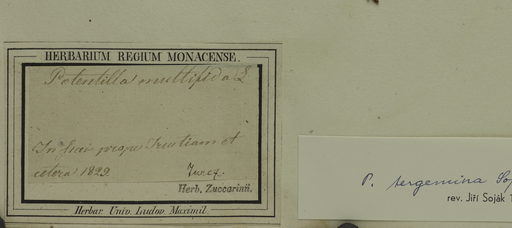 HERBARIUM REGIUM MONACENSE.
Potentilla multifida L
In
et
1829. Turcz.
Herb. Zuccarinii.
Herbar. Univ. Ludov. Maximil.
P. tergemina Soj
rev. Jiří Soják 1